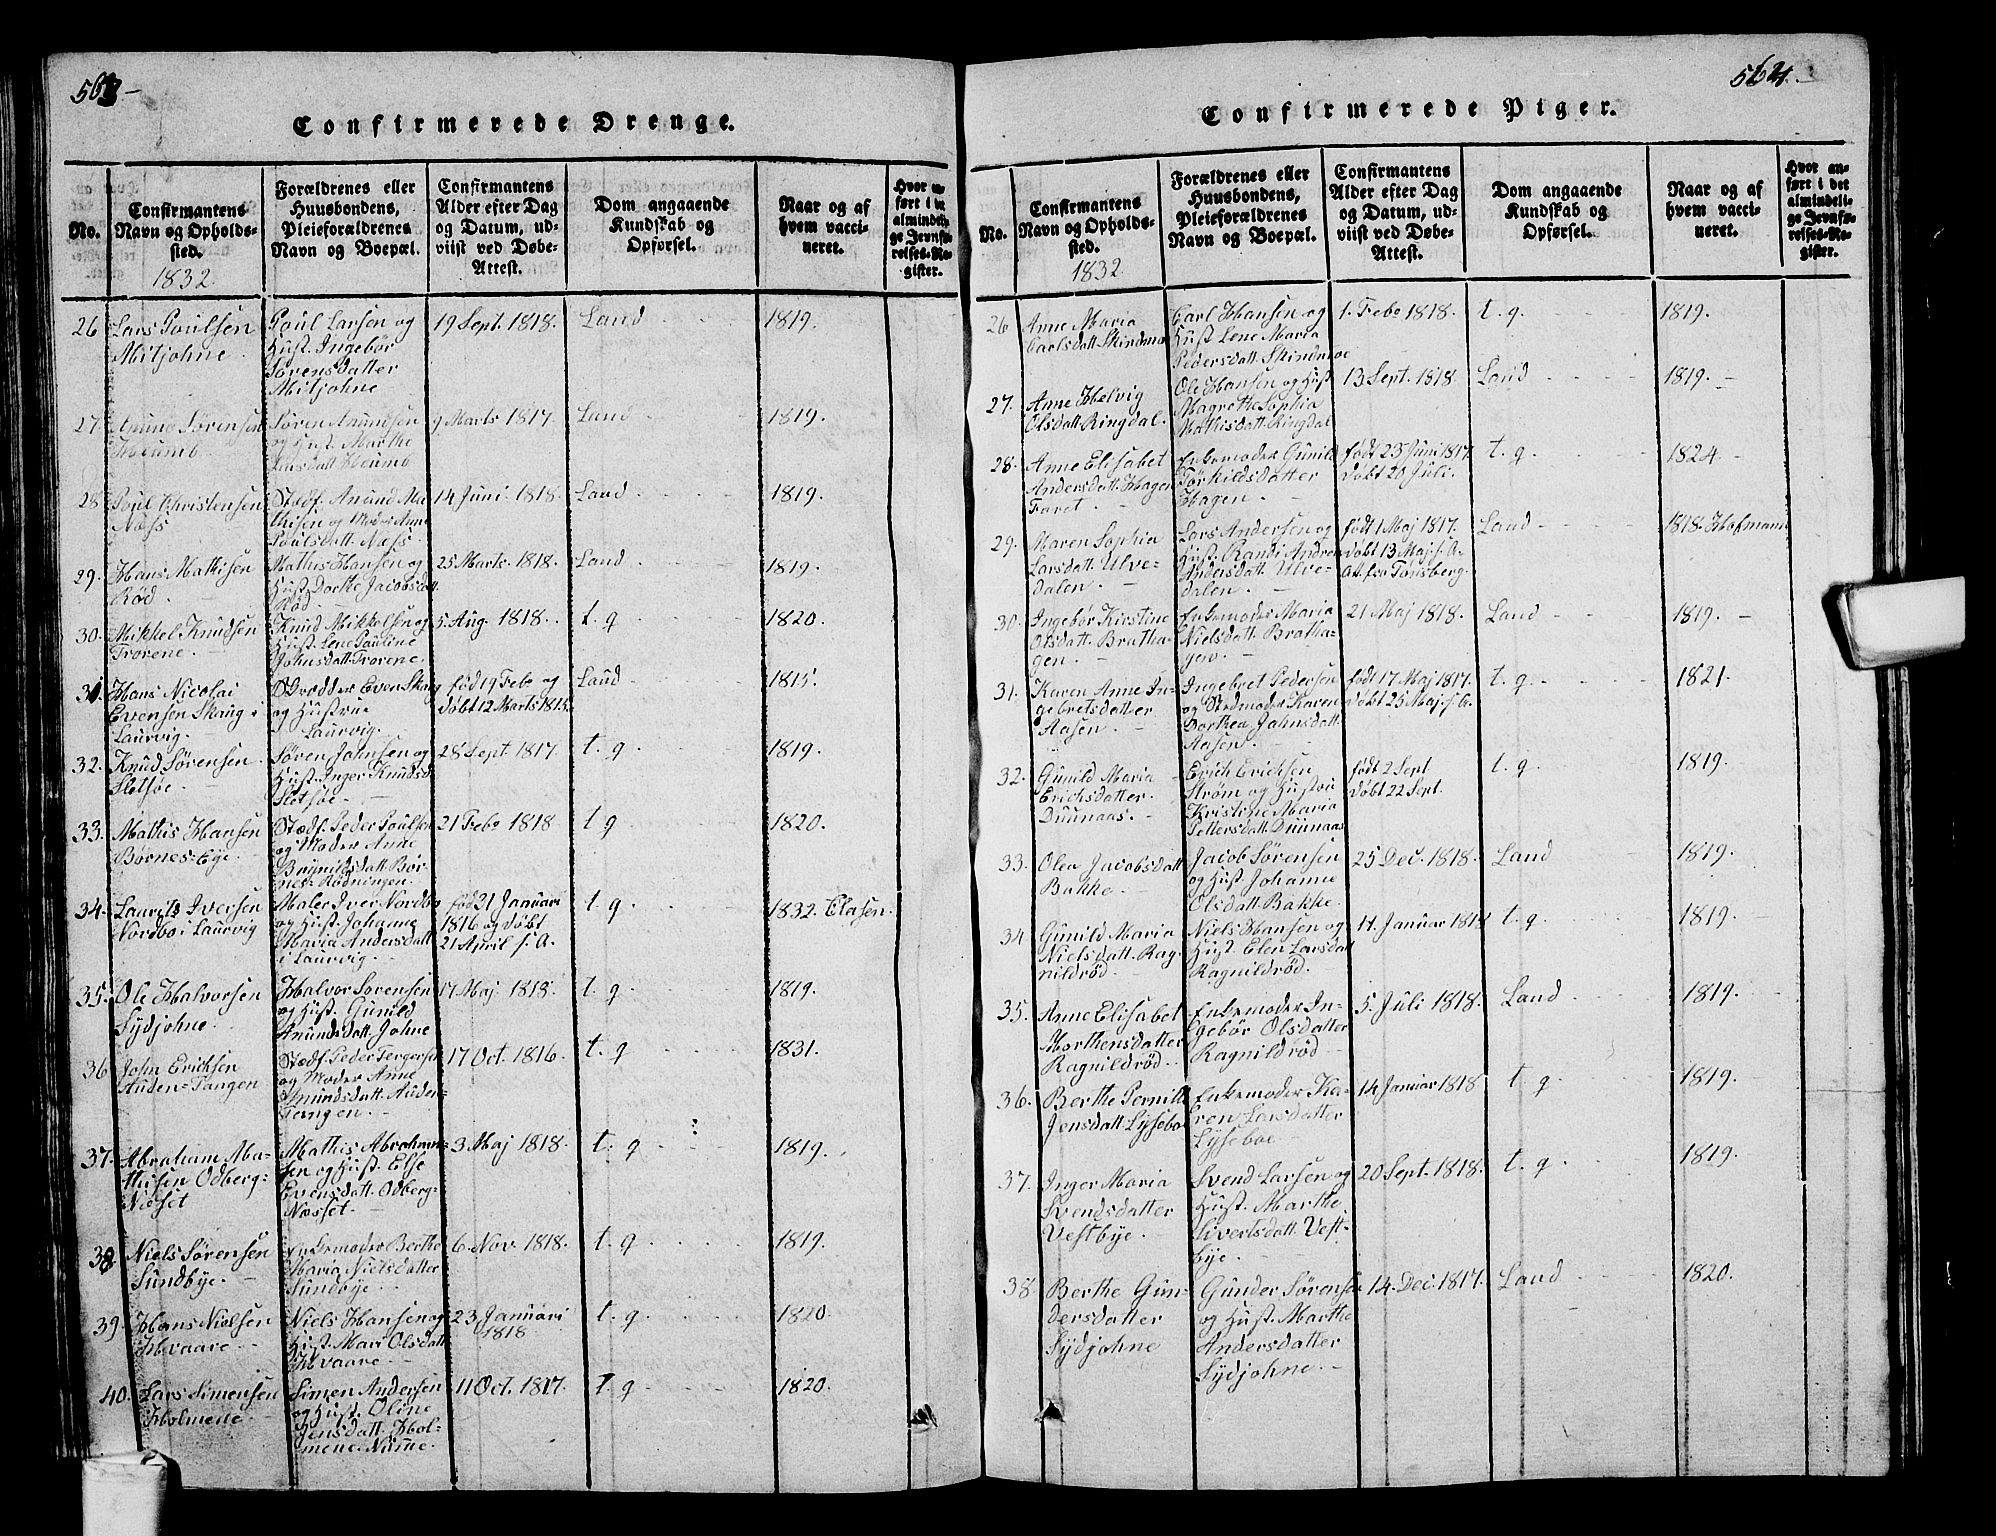 563-
Confirmerede Drenge.
No.
Confirmantens
Navn og Opholds-
sted.
1832
Forældrenes eller
Huusbondens,
Pleieforældrenes
Navn og Boepæl.
Confirmantens
Alder efter Dag
og Datum, ud-
viist ved Døbe-
Attest.
Dom angaaende
Kundskab og
Opførsel.
Naar og af
hvem vacci-
neret.
Hvor an-
ført i det
almindeli-
ge Jevnfø-
relses-Re-
gister.
26
Lars Poulsen
Mitjohne
Poul Larsen og
Hust. Ingebør
Sørensdatter
Mitjohne
19 Sept. 1818.
Land
1819.
27
Anund Sørensen
Heumb.
Søren Anundsen
og Hust. Marthe
Larsdatt. Heumb
9 Marts 1817.
Land
1819.
28
Poul Christensen
Næss
Stedf. Anund Ma-
thisen og Moder Anne
Poulsdatt. Næss.
14 Juni 1818.
Land
1819.
29.
Hans Mathisen
Rød.
Mathis Hansen og
Hust. Dorthe Jacobsdatt.
Rød.
25 Marts. 1818.
Land
1819.
30.
Mikkel Knudsen
Trorene.
Knud Mikkelsen og
Hust. Lene Pauline
Johnsdatt. Trorene.
5. Aug. 1818.
t. g
1820.
31.
Hans Nicolai
Evensen Skoug i
Laurvig.
Even Skoug
og Hustrue
Laurvig.
fød 19 Febr og
døbt 12 Marts 1815.
Land
1815.
32.
Knud Sørensen.
Slotsøe.
Søren Johnsen og
Hust. Inger Knudsd.
Slotsøe.
28 Sept. 1817.
t. g
1819.
33.
Mathis Hansen
Børnes-Eye.
Stedf. Peder Poulsen
og Moder Anne
Brynildsdatt. Bør-
nes-Rødningen.
21 Febr 1818
t g
1820.
34.
Laurits Iversen
Nordbo i Laurvig
Maler Iver Nordbo
og Hust. Johanne
Maria Andersdatt.
i Laurvig.
fød 21 Januari
1816 og døbt
21 April s. A.
t. g.
1832. Clasen.
35.
Ole Halvorsen
Sydjohne.
Halvor Sørensen
og Hust. Gunild
Anundsdatt. Johne
17 Maj 1818.
t. g
1819.
36
John Erichsen
Auden-Tangen
Stedf. Peder Tergersen
og Moder Anne
Amundsdatt. Auden-
Tangen.
17 Oct. 1816.
t. g
1831.
37.
Abraham Ma-
thisen Odberg-
Nesset
Mathis Abraham-
sen og Hust. Else
Evensdatt. Odberg-
Næsset.
3 Maj 1818.
t. g
1819.
38
Niels Sørensen
Sundbye.
Enkemoder Berthe
Maria Nielsdatter
Sundbye.
6. Nov. 1818.
t. g
1819.
39
Hans Nielsen
Hvaare.
Niels Hansen og
Hust. Mari Olsdatt.
Hvaare.
23 Januari
1818
t. g.
1820
40.
Lars Simensen
Holmene.
Simen Andersen
og Hust. Oline
Jensdatt. Hol-
mene-Numme.
11 Oct. 1817.
t. g
1820.
564.
Confirmerede Piger.
No.
Confirmantens
Navn og Opholds-
sted.
1832
Forældrenes eller
Huusbondens,
Pleieforældrenes
Navn og Boepæl.
Confirmantens
Alder efter Dag
og Datum, ud-
viist ved Døbe-
Attest.
Dom angaaende
Kundskab og
Opførsel.
Naar og af
hvem vacci-
neret.
Hvor an-
ført i det
almindeli-
ge Jevnfø-
relses-Re-
gister.
26
Anne Maria
Carlsdatt. Skindmo
Carl Hansen og
Hust. Lene Maria
Pedersdatt. Skindmoe
1. Febr 1818.
t. g.
1819.
27.
Anne Helvig
Olsdatt. Ringdal.
Ole Hansen og Hust.
Magrethe Sophia
Mathisdatt. Ringdal
13 Sept. 1818
Land
1819.
28.
Anne Elisabet
Andersdatt. Hagen
Faret.
Enkemoder Gunild
Tørkildsdatter
Hagen.
født 23 Juni 1817
døbt 20 Juli.
t. g
1824
29.
Maren Sophia
Larsdatt. Ulve-
dalen.
Lars Andersen og
Hust. Randi Andrea
Andersdatt. Ulve-
dalen.
født 1 Maj 1817.
døbt 13 Maj s. A.
At. fra Tønsberg.
Land
1818. Hofmann
30.
Ingebør Kirstine
Olsdatt. Bratha-
gen.
Enkemoder Maria
Nielsdatt. Bratha-
gen.
21 Maj 1818.
Land
1819.
31.
Karen Anne In-
gebretsdatter
Aasen.
Ingebret Pedersen
og Stedmoder Karen
Dorthea Johnsdatt.
Aasen.
født 17 Maj 1817.
døbt 25 Maj s. A.
t. g
1821.
32.
Gunild Maria
Erichsdatter
Duunaas.
Erich Erichsen
Strøm og Hustru
Kristine Maria
Pettersdatt. Duunaas
født 2 Sept
døbt 22 Sept.
t. g
1819.
33.
Olea Jacobsdatt.
Bakke.
Jacob Sørensen
og Hust. Johanne
Olsdatt. Bakke.
25 Dec. 1818.
Land
1819.
34
Gunild Maria
Nielsdatt. Rag-
nildrød.
Niels Hansen og
Hust. Elen Larsdatt
Ragnildrød.
11. Januar 1818
t. g
1819.
35.
Anne Elisabet
Morthensdatter
Ragnildrød.
Enkemoder In-
gebør Olsdatter
Ragnildrød
5. Juli 1818.
Land
1819.
36.
Berthe Pernill
Jensdatt. Lyseboe
Enkemoder Ka-
ren Larsdatter
Lyseboe
14 Januar 1818
t g
1819.
37.
Inger Maria
Svendsdatter
Vestbye.
Svend Larsen og
Hust. Marthe
Sivertsdatt. Vest-
bye.
20 Sept. 1818.
t. g
1819.
38.
Berthe Gun-
dersdatter
Sydjohne
Gunder Sørensen
og Hust. Marthe
Andersdatter
Sydjohne.
14. Dec. 1817.
Land
1820.